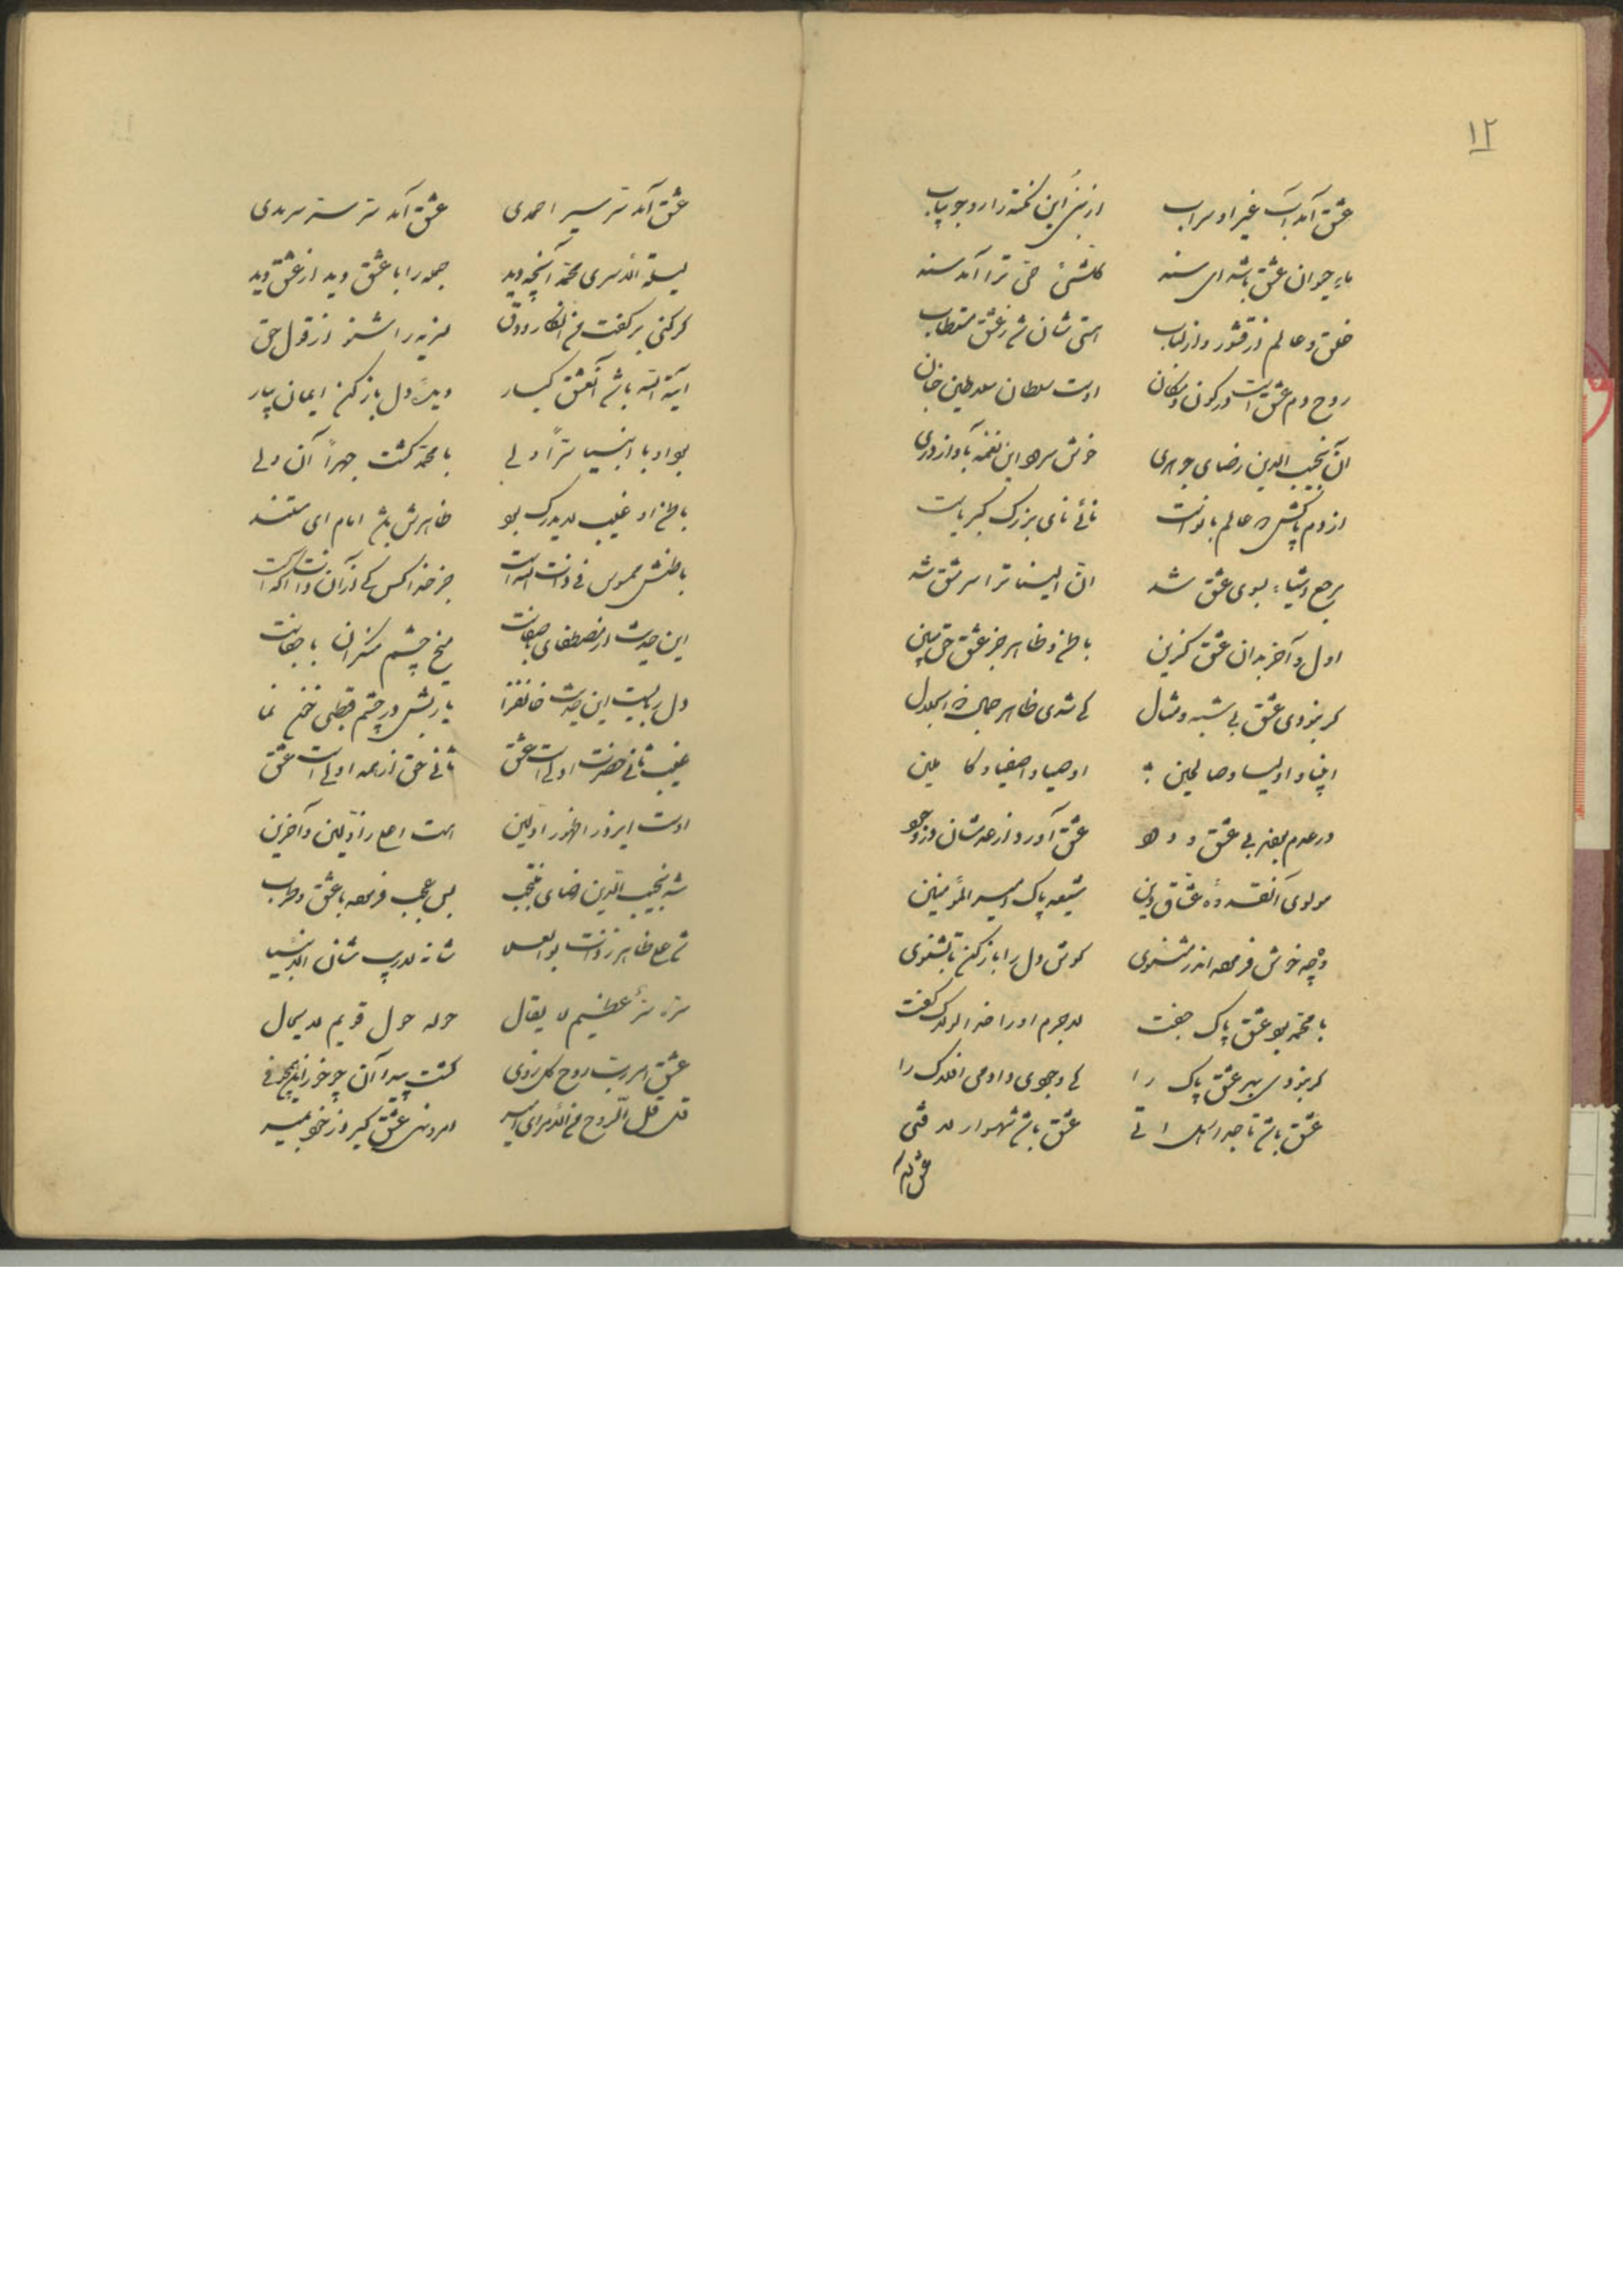 ۱۲
عشق آمد آب غیر او سراب از نبی این نکته را رو جو بیاب
ماء حیوان عشق باشد ای سند کلشئ حی ترا آمد سند
خلق و عالم از قشور و از لباب هستی شان شد ز عشق مستطاب
روح و دم عشق است در کون و مکان اوست سلطان سلاطین جهان
آن نجیب الدین رضای جوهری خوش سرود این نغمه باواز دری
از دم پاکش عالم با نواست نائی نای بزرگ کبریاست
مرجع اشیاء بسوی عشق شد ان الینا ترا سر عشق شد
اول و آخر بدان عشق گزین باطن و ظاهر جز عشق حق مبین
گر نبودی عشق بی شبه و مثال کی شدی ظاهر جمال ذو الجلال
انبیا و اولیا و صالحین اوصیا و اصفیا و کاملین
در عدم بودند بی عشق ودود عشق آورد از عدمشان در وجود
مولوی آن قدوهٔ عشاق دین شیعه پاک امیر المؤمنین
وه چه خوش فرموده اندر مثنوی گوش دل را باز کن تا بشنوی
با محمد بود عشق پاک جفت لاجرم او را خدا لولاک گفت
گر نبودی بهر عشق پاک را کی وجودی دادمی افلاک را
عشق باشد تاجدار هل اتی عشق باشد شهسوار لا فتی
عشق آمد
عشق آمد سر سیر احمدی عشق آمد سر ستر سرمدی
لیلة الاسری محمد آنچه دید جمله را با عشق دید از عشق دید
گر کنی بر گفت من انکار و دق لنریه را شنو از قول حق
آیة الله باشد آن عشق کبار دیدهٔ دل باز کن ایمان بیار
بود او با انبیا سراً ولی با محمد گشت جهراً آن ولی
باطن او غیب لا یدرک بود ظاهرش باشد امام ای مستند
باطنش ممسوس فی ذات الله است جز خدا کس کی از آن ذات آگه است
این حدیث از مصطفای با صفات میخ چشم منکران با جفاست
دل رباییست این حدیث جانفزا یا ربش در چشم قبطی خون نما
غیب ثانی حضرت اولی است عشق ثانی حق از همه اولی است عشق
اوست ابرز از ظهور اولین هست اعلی ز اولین و آخرین
شه نجیب الدین رضای منتجب بس عجب فرموده با عشق و طرب
شد علی ظاهر ز ذات بوالعلا شانه لا رب شان الانبیا
سره سر عظیم لا یقال حوله حول قویم لا یحال
عشق امر رب روح کل روی گشت پیدا آن چو خور از بیخودی
قل قل الروح من امر ای امیر امر دان عشق کبیر و از خود بمیر